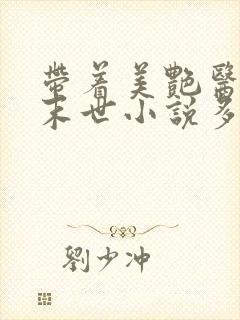 帶着美艷醫
末世小説多
劉少冲